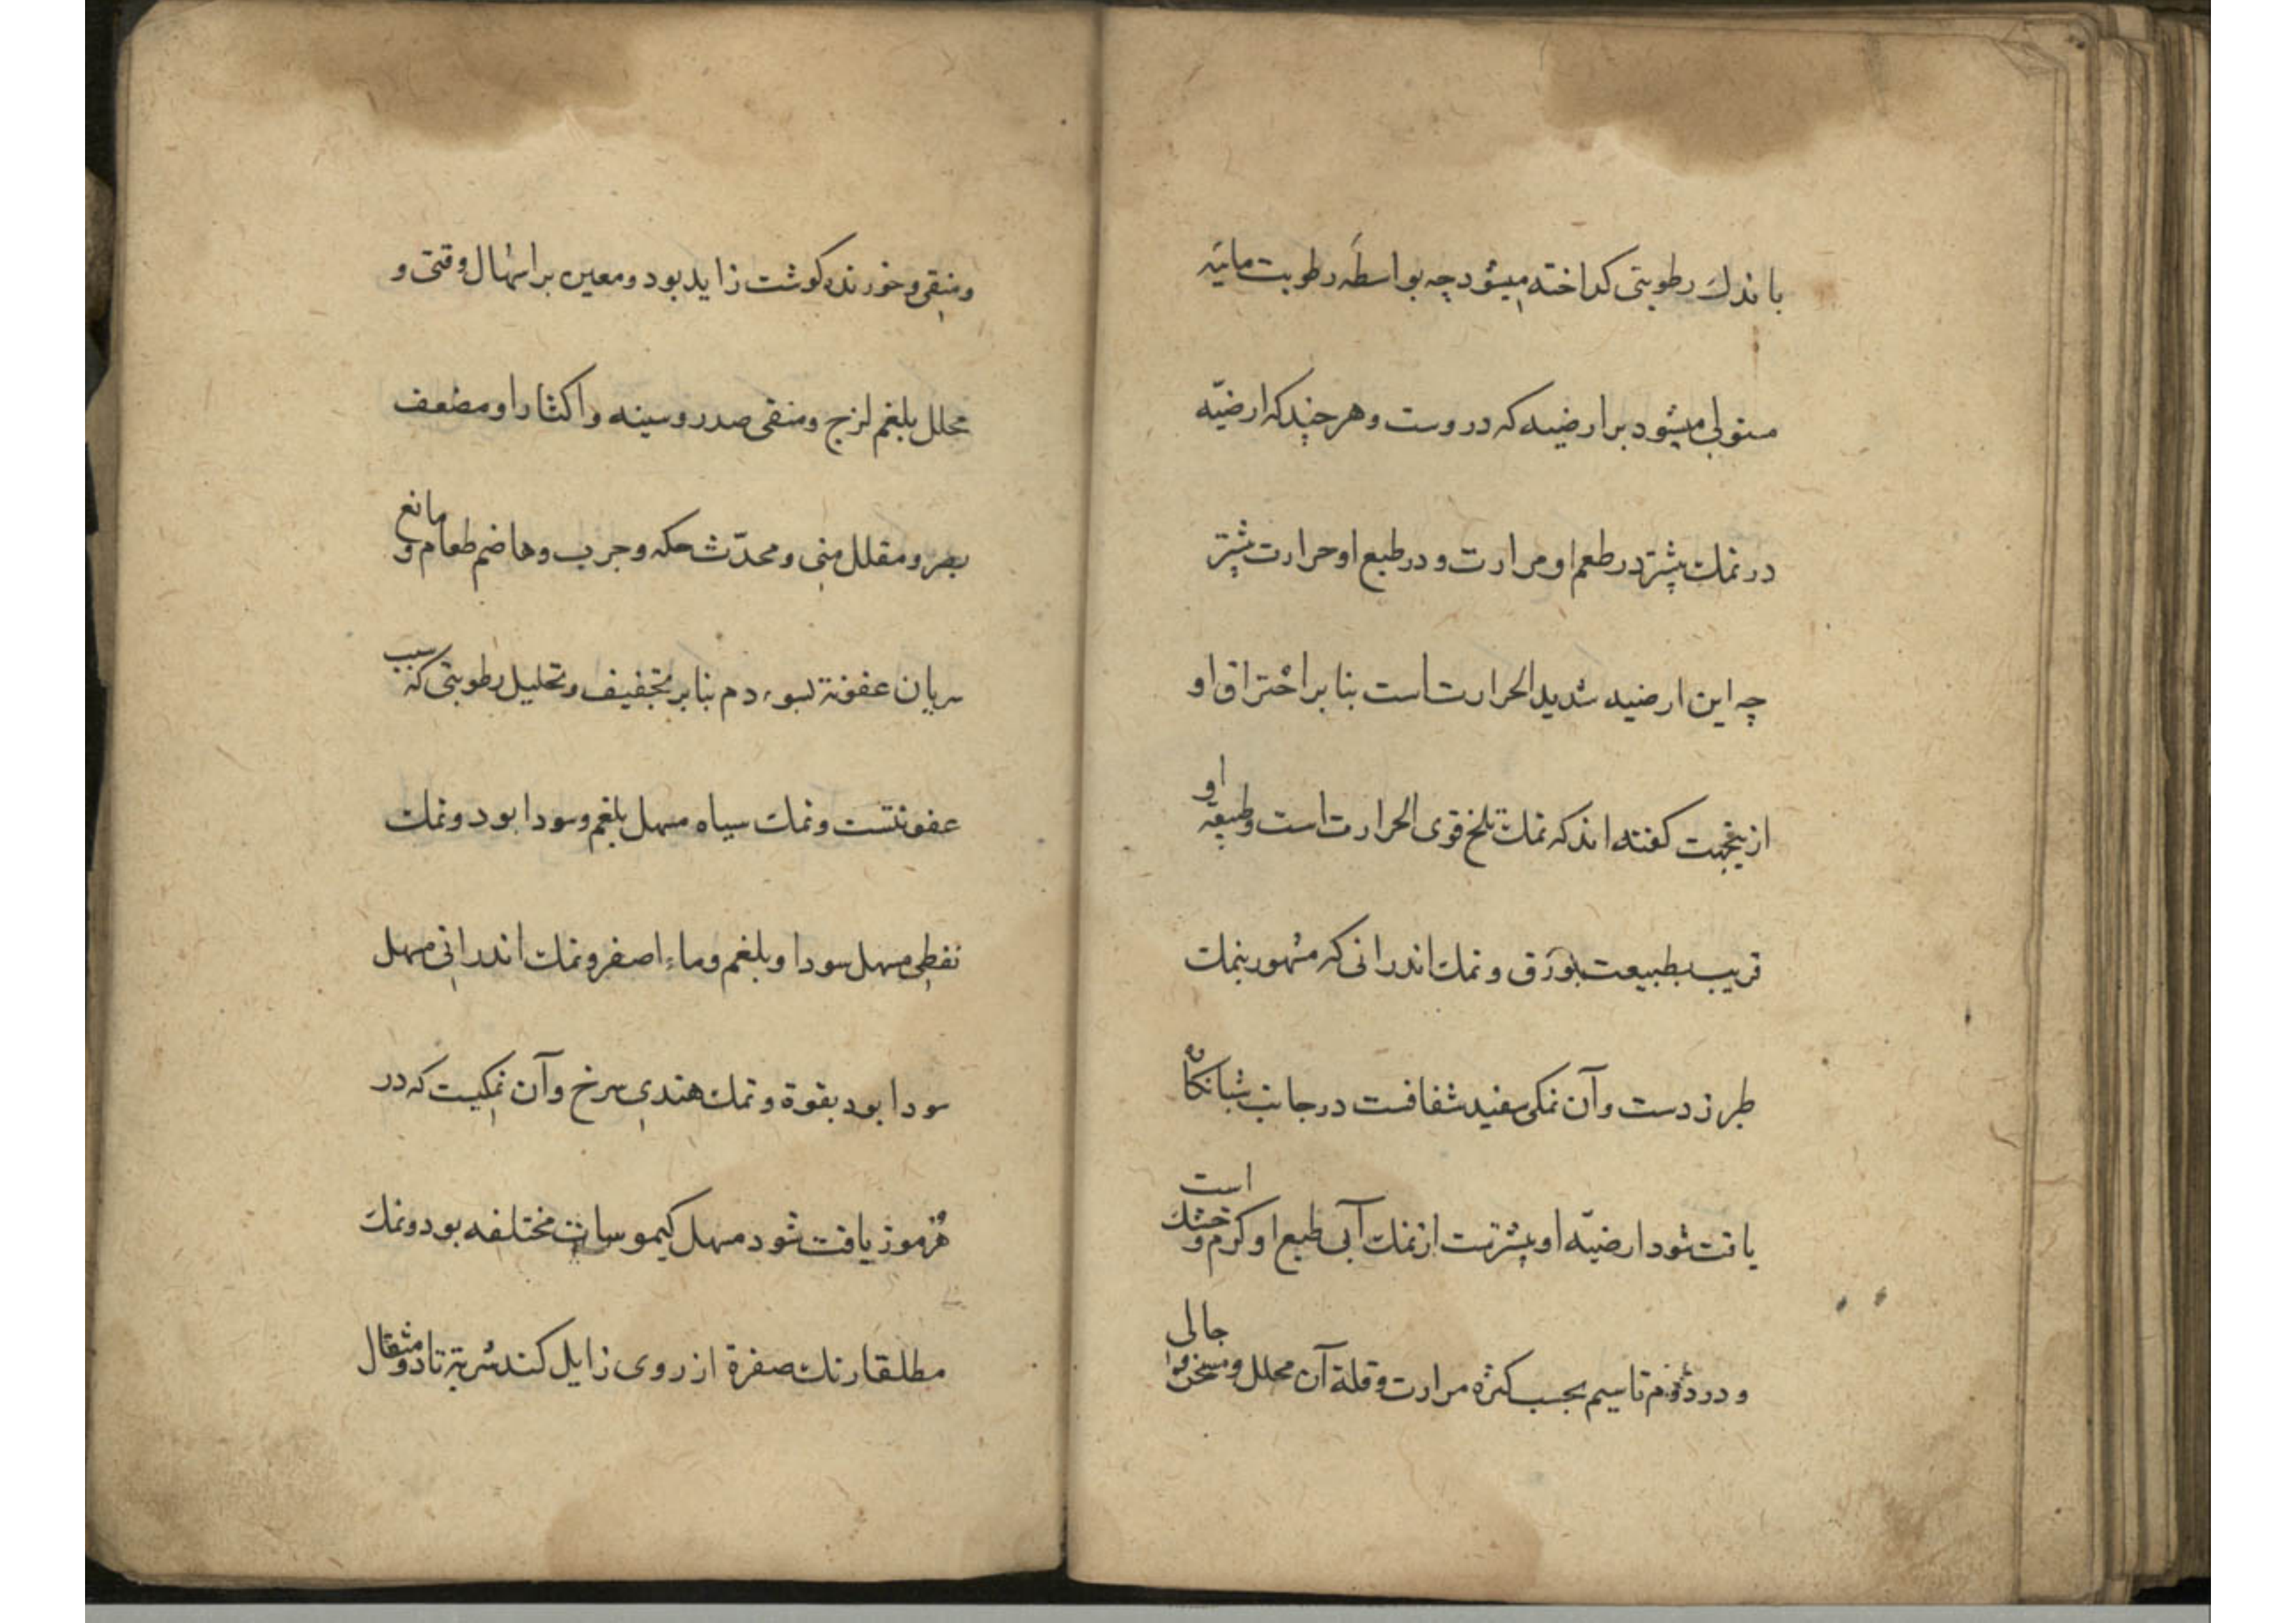 باندك رطوبتی کداخته میشود چه بواسطهٔ رطوبت مائیه
مستولی میشود بر ارضیه که دروست و هر چند که ارضیّه
در نمك بیشتر در طعم او مرارت و در طبع او حرارت بیشتر
چه این ارضیه شدید الحرارت است بنا بر احتراق او
ازینجهت کفته اند که نمك تلخ قوی الحرارت است و طبیعة او
قریب بطبیعت بورق و نمك اندرانی که مشهور بنمك
طبرزدست و آن نمکی سفید شفافست در جانب شبانکاه
یافت شود ارضیّه او بیشترست از نمك آبی طبع او کرم و خشك است
و در دوّم تا سیم بحسب کثرة مرارت و قلة آن محلل و مسخن و جالی
و منقی و خورنده کوشت زاید بود و معین بر اسهال و قئ و
محلل بلغم لزج و منقی صدر و سینه و اکثار او مضعف
بصر و مقلل منی و محدّث حکه و جرب و هاضم طعام و مانع
سریان عفونة بسوء دم بنا بر تجفیف و تحلیل رطوبتی که سبب
عفونتست و نمك سیاه مسهل بلغم و سودا بود و نمك
نفطی مسهل سودا و بلغم و ماء اصفر و نمك اندرانی مسهل
سودا بود بقوة و نمك هندی سرخ و آن نمکیست که در
هرموز یافت شود مسهل کیموسات مختلفه بود و نمك
مطلقا رنك صفرة از روی زایل کند شربة تا دو مثقال